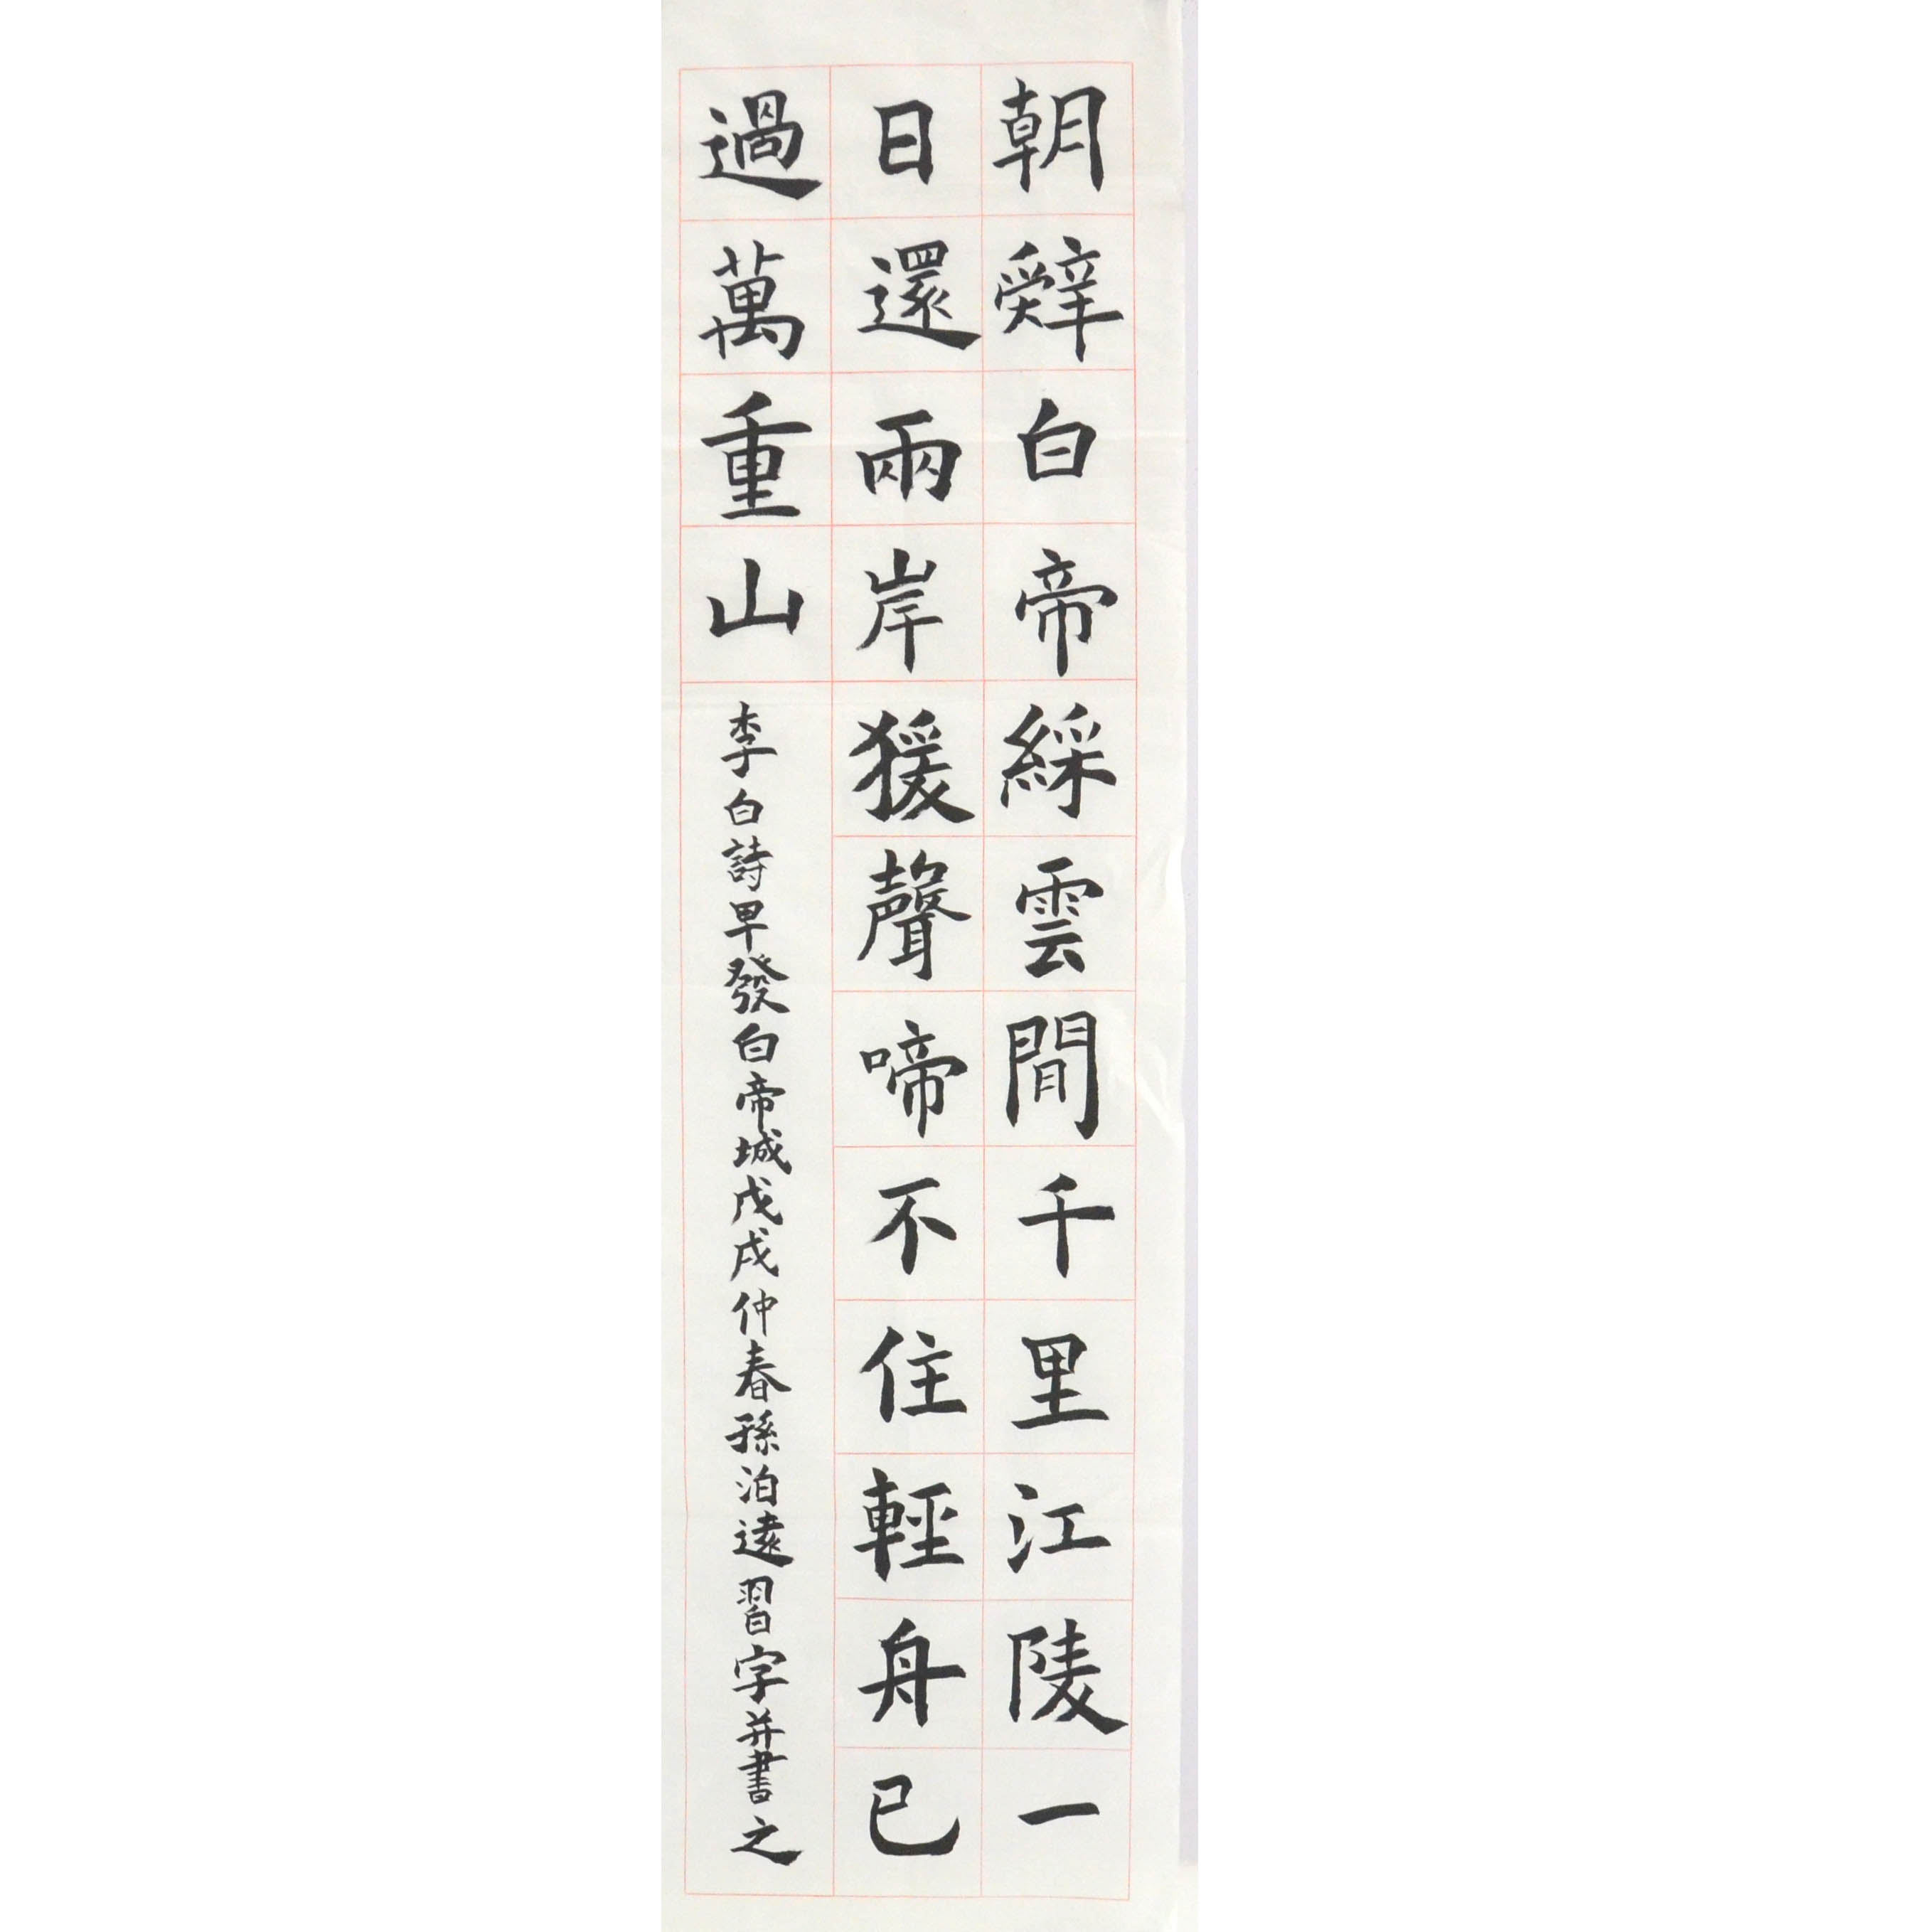 朝辤白帝綵雲間千里江陵一
日還兩岸猨聲啼不住輕舟已
過萬重山
李白詩早發白帝城戊戌仲春孫泊遠習字并書之